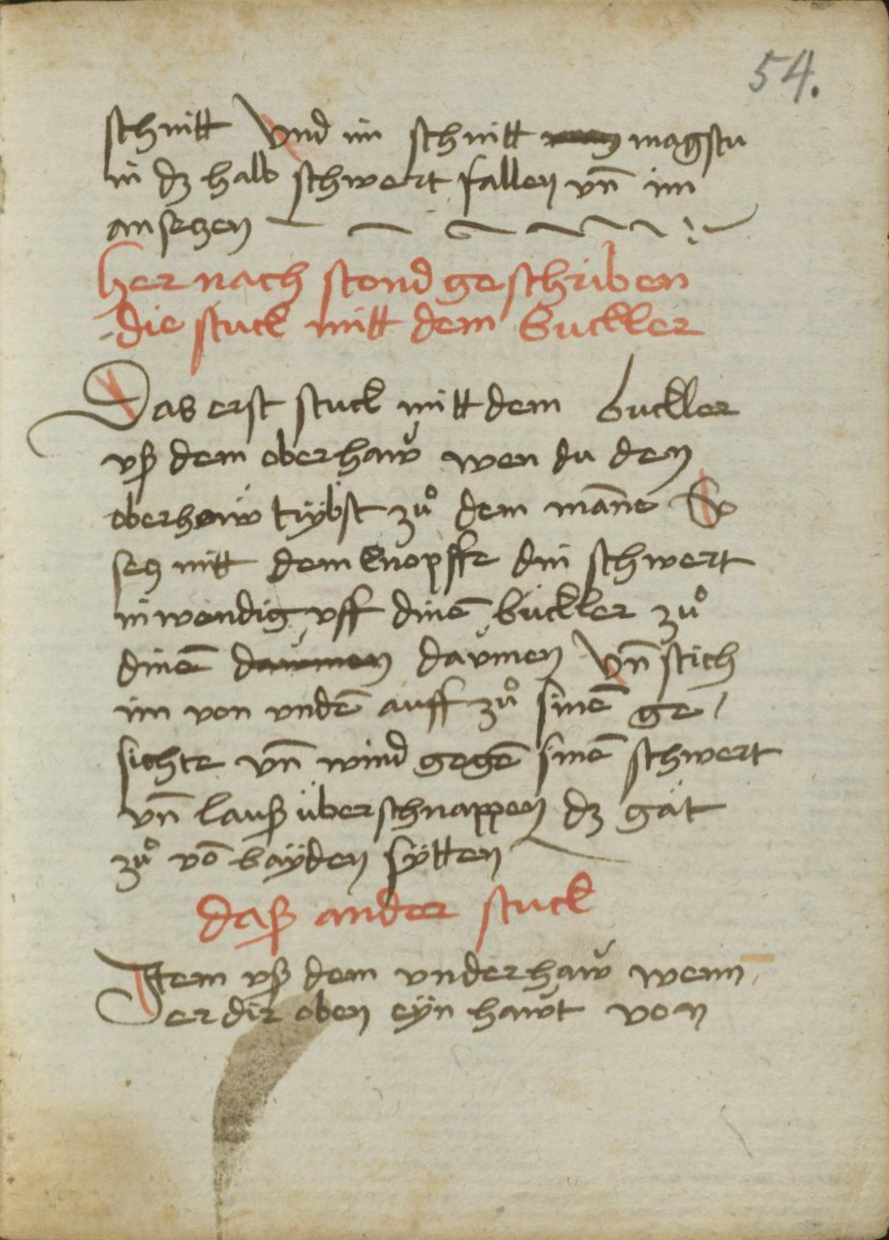 54.
schnitt Vnd im schnitt magstu
in dz halb schwert fallen vn̄ im
an seczen
Her nach stond geschriben
die stuck mitt dem buckller
Das erst stuck mitt dem buckller
vß dem oberhaw wen du den
oberhaw trÿbst zů dem man̄e So
secz mitt dem knopffe din schwert
inwendig vff dinē buckller zů
dinē daumen Vn̄ stich
im von vndē auff zů sinē ge
sichte vn̄ wind gegē sinē schwert
vn̄ lauß überschnappen dz gät
zů vō baÿden sÿtten
daß ander stuck
Item vß dem vnderhaw wenn
er dir oben eÿn hawt von